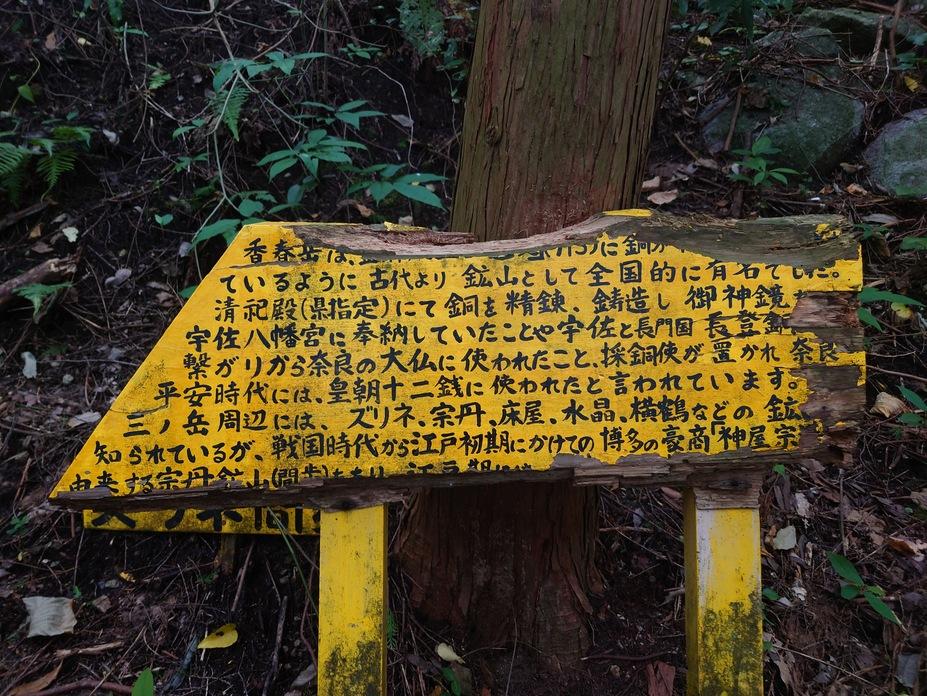 香春岳は、
ているように古代より鉱山として全国的に有名でした。
清祀殿(県指定)にて銅を精錬、鋳造し御神鏡
宇佐八幡宮に奉納していたことや宇佐と長門国長登銅
繋がりから奈良の大仏に使われたこと、採銅使が置かれ奈良
平安時代には、皇朝十二銭に使われたと言われています。
三ノ岳周辺には、ズリネ、宗丹、床屋、水晶、横鶴などの鉱
知られているが、戦国時代から江戸初期にかけての博多の豪商「神屋宗
由来する宗丹鉱山(間歩)